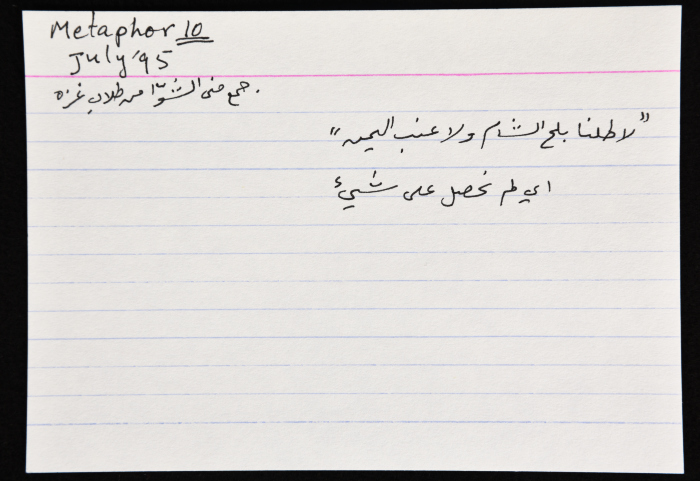 Metaphor 10
July '95
جمع منى الشوا من طلاب غزة.
"لا طلنا بلح الشام ولا عنب اليمن"
اي لم نحصل على شيئ